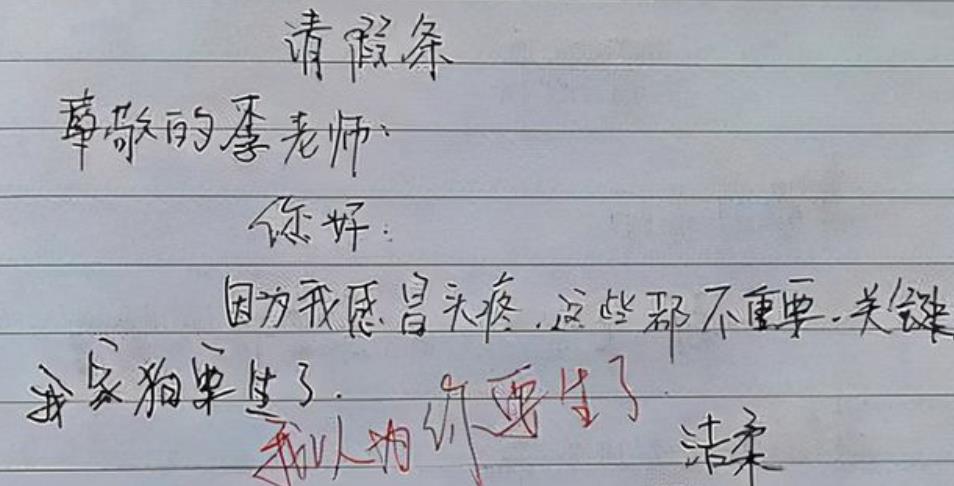 请假条
尊敬的李老师：
您好：
因为我感冒头疼.这些都不重要.关键
我家狗要生了.
我以为你要生了
洁柔